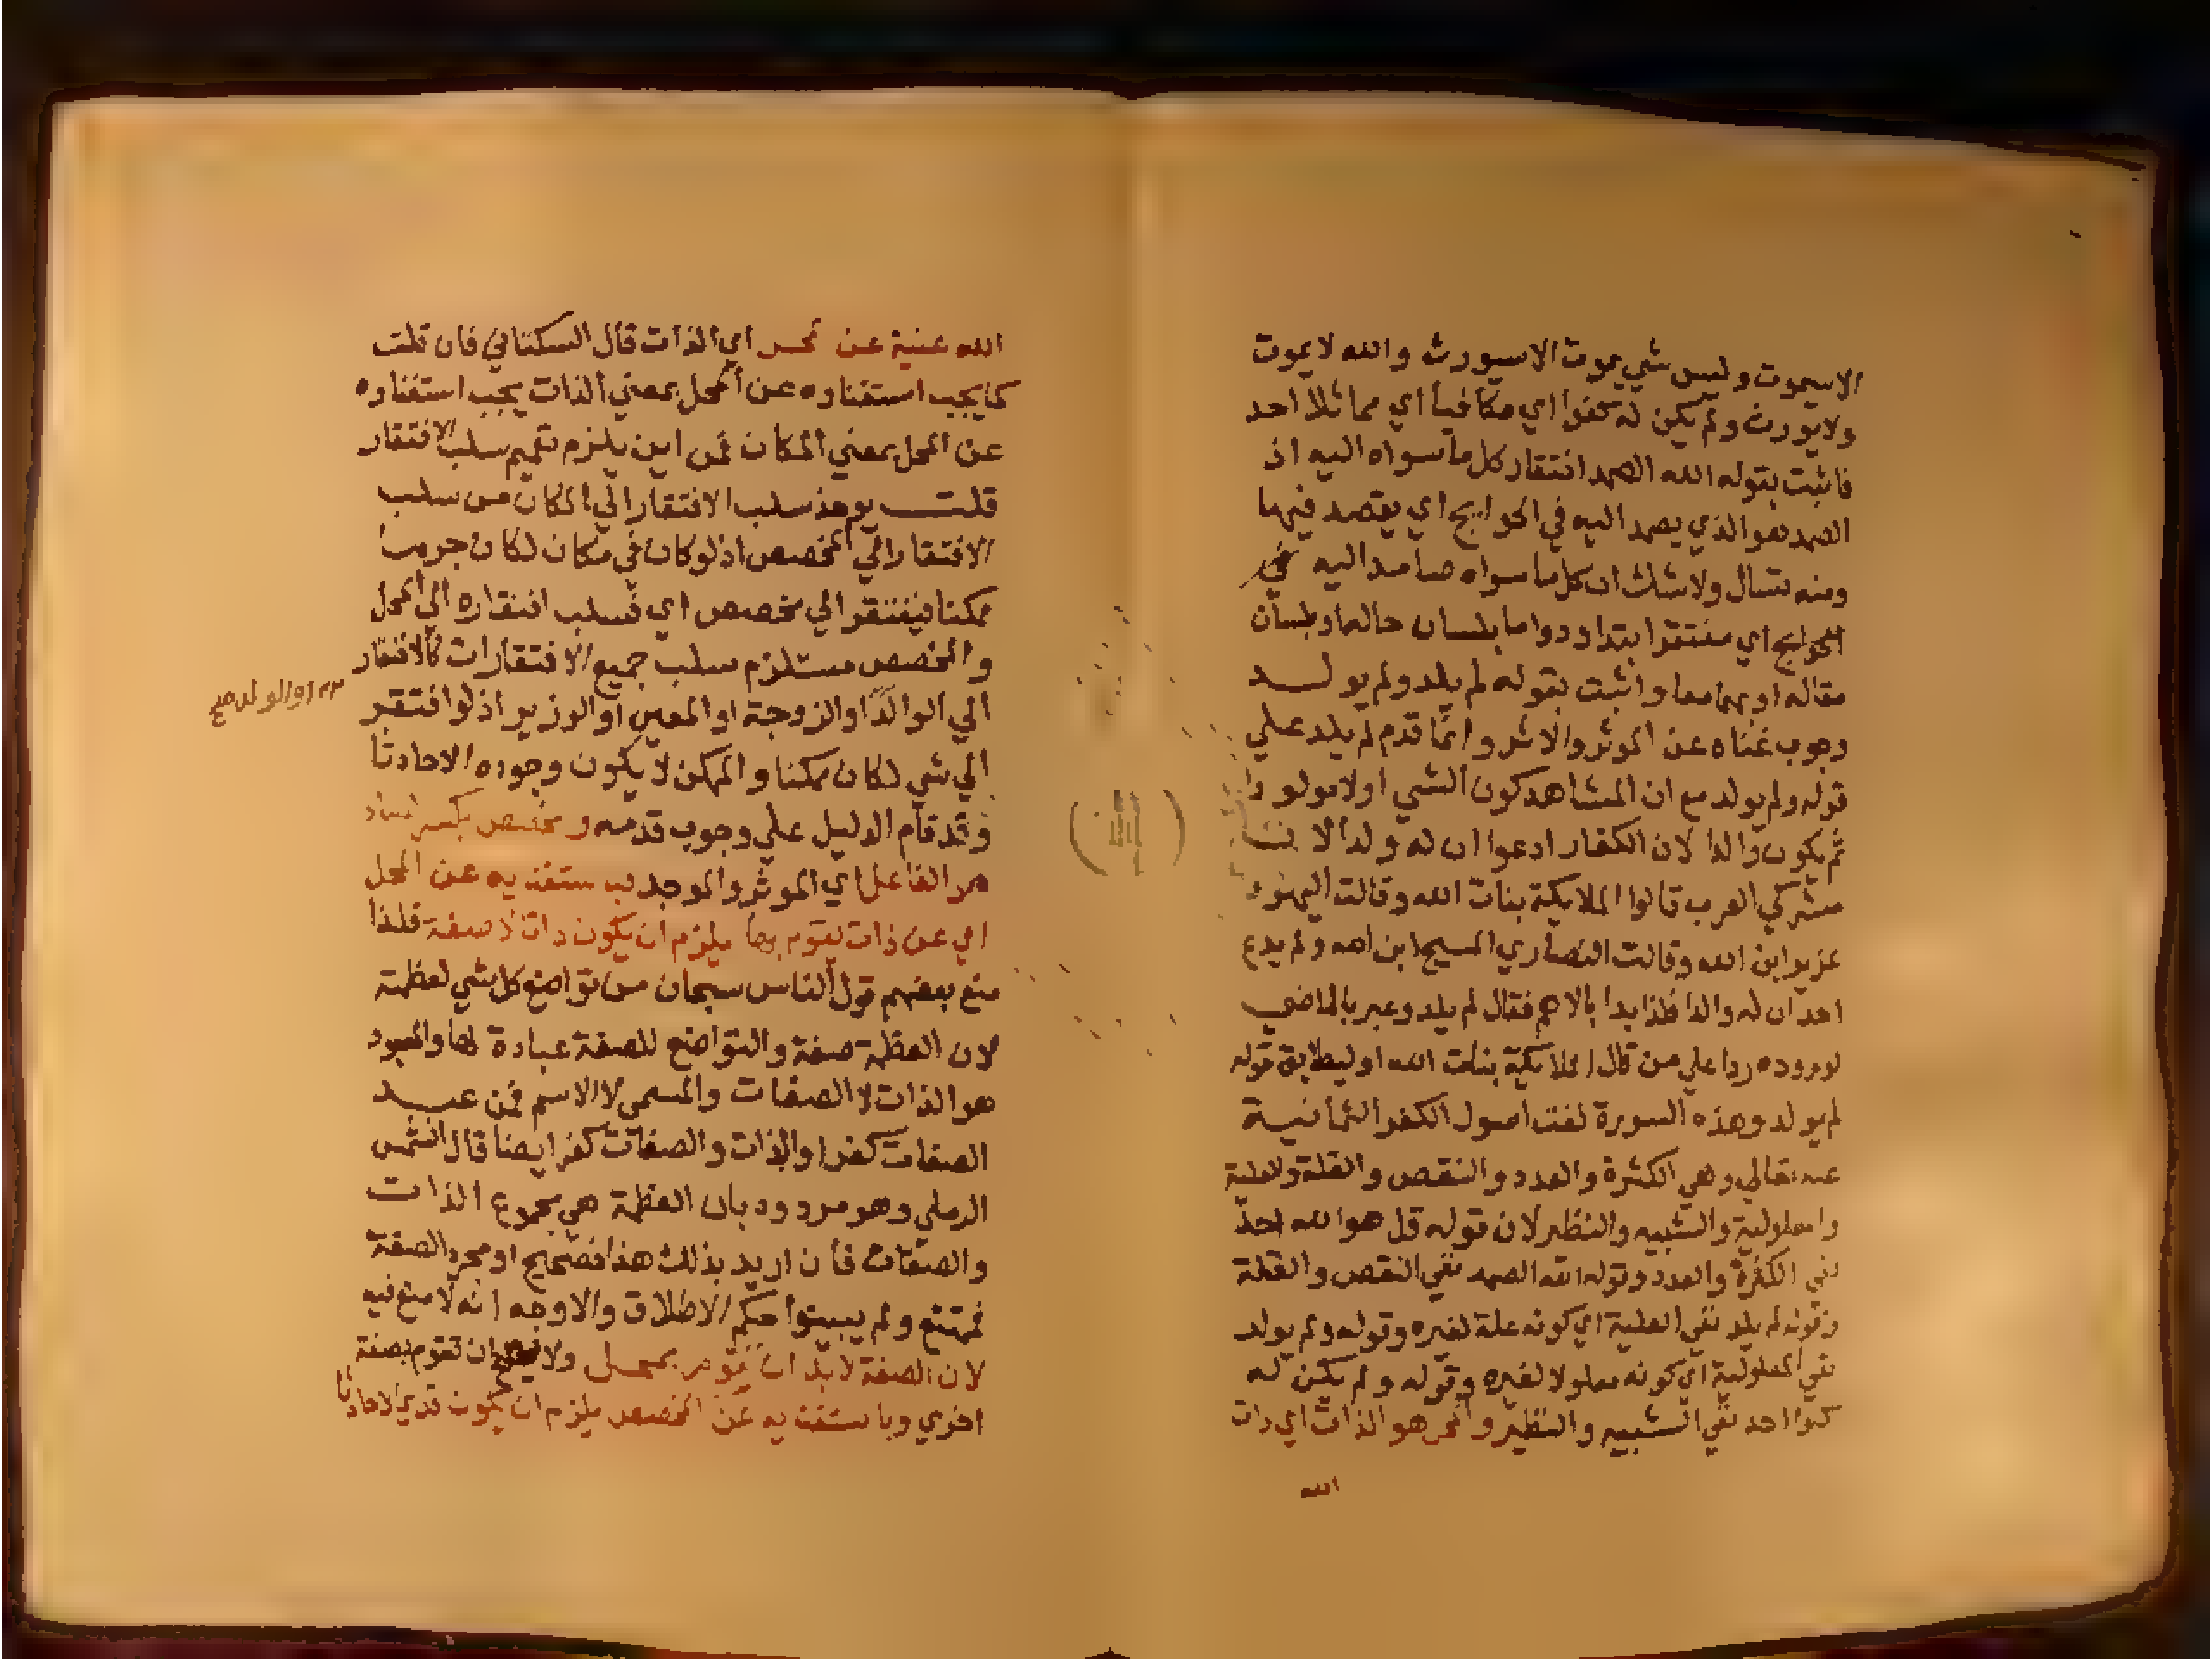 الاسيموت وليس شي يموت الاسيورث والله لا يموت
ولا يورث ولم يكن له كفوا اي مكافيا اي مماثلا احد
فاثبت بقوله الله الصمد افتقار كل ما سواه اليه اذ
الصمد هو الذي يصمد اليه في الحوايج اي يقصد فيها
ومنه تسال ولا شك ان كل ما سواه صامد اليه في
الحوايج اي مفتقرا بتدا ودواما بلسان حاله او بلسان
مقاله او بهما معا واثبت بقوله لم يلد ولم يولد
وجوب غناه عن الموثر والاثر وانما قدم لم يلد علي
قوله ولم يولد مع ان المشاهد كون الشي اولا مولودا
ثم يكون والدا لان الكفار ادعوا ان له ولدا لا
مشركي العرب قالوا الملايكة بنات الله وقالت اليهود
عزير ابن الله وقالت النصاري المسيح ابن الله ولم يدع
احد ان له والدا فلذا بدا بالاهم فقال لم يلد وعبر بالماضي
لوروده ردا علي من قال الملايكة بنات الله او ليطابق قوله
لم يولد وهذه السورة نفت اصول الكفر الثمانية
عنه تعالي وهي الكثرة والعدد والنقص والقلة والعلية
والمعلولية والشبيه والنظير لان قوله قل هو الله احد
نفي الكثرة والعدد وقوله الله الصمد نفي النقص والقلة
وقوله لم يلد نفي العلية اي كونه علة لغيره وقوله ولم يولد
نفي المعلولية اي كونه معلولا لغيره وقوله ولم يكن له
كفوا احد نفي الشبيه والنظير والمحل هو الذات اي ذات
الله
الله غنية عن محل اي الذات قال السكتاني فان قلت
كما يجب استغناوه عن المحل بمعني الذات يجب استغناوه
عن المحل بمعني المكان فمن اين يلزم تعميم سلب الافتقار
قلت يوخذ سلب الافتقار الي المكان من سلب
الافتقار الي المخصص اذ لو كان في مكان لكان جرما
ممكنا فيفتقر الي مخصص اي فسلب افتقاره الي المحل
والمخصص مستلزم سلب جميع الافتقارات كالافتقار
الي الوالد او الزوجة او المعين او الوزير اذ لو افتقر
او الولد صح
الي شي لكان ممكنا والممكن لا يكون وجوده الا حادثا
وقد قام الدليل علي وجوب قدمه ومخصص بكسر الصاد
هو الفاعل اي الموثر والموجد فباستغنايه عن المحل
اي عن ذات يقوم بها يلزم ان يكون ذاتا لا صفة فلذا
منع بعضهم قول الناس سبحان من تواضع كل شي لعظمته
لان العظمة صفة والتواضع للصفة عبادة لها والمعبود
هو الذات لا الصفات والمسمي لا الاسم فمن عبد
الصفات كفر او الذات والصفات كفر ايضا قال الشمس
الرملي وهو مردود بان العظمة هي مجموع الذات
والصفات فان اريد بذلك هذا فصحيح او مجرد الصفة
فممتنع ولم يبينوا حكم الاطلاق والاوجه انه لا منع فيه
لان الصفة لا بد ان تقوم بمحل ولا يصح ان تقوم بصفة
اخري وباستغنايه عن المخصص يلزم ان يكون قديما لا حادثا